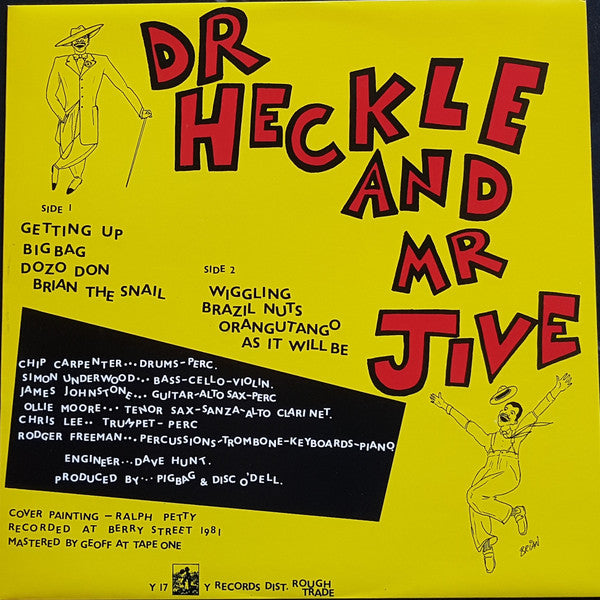 DR
HECKLE
AND
MR
JIVE
SIDE 1
GETTING UP
BIG BAG
DOZO DON
BRIAN THE SNAIL
SIDE 2
WIGGLING
BRAZIL NUTS
ORANGUTANGO
AS IT WILL BE
CHIP CARPENTER... DRUMS-PERC.
SIMON UNDERWOOD... BASS-CELLO-VIOLIN.
JAMES JOHNSTONE... GUITAR-ALTO SAX-PERC
OLLIE MOORE... TENOR SAX-SANZA-ALTO CLARINET.
CHRIS LEE.. TRUMPET- PERC
RODGER FREEMAN... PERCUSSIONS-TROMBONE-KEYBOARDS-PIANO
ENGINEER... DAVE HUNT.
PRODUCED BY... PIGBAG & DISC O'DELL.
COVER PAINTING – RALPH PETTY
RECORDED AT BERRY STREET 1981
MASTERED BY GEOFF AT TAPE ONE
BRIAN
Y 17 Y RECORDS DIST. ROUGH
TRADE